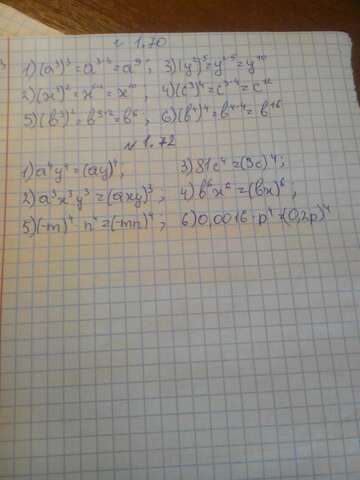 № 1.70
1) (a³)³ = a³·³ = a⁹; 3) (y²)⁵ = y²·⁵ = y¹⁰
2) (x⁵)² = x⁵·² = x¹⁰; 4) (c³)⁴ = c³·⁴ = c¹²
5) (b³)² = b³·² = b⁶; 6) (b⁴)⁴ = b⁴·⁴ = b¹⁶
№ 1.72
1) a⁴y⁴ = (ay)⁴; 3) 81c⁴ = (3c)⁴;
2) a³x³y³ = (axy)³; 4) b⁶x⁶ = (bx)⁶;
5) (-m)⁴ · n⁴ = (-mn)⁴; 6) 0,0016 · p⁴ = (0,2p)⁴